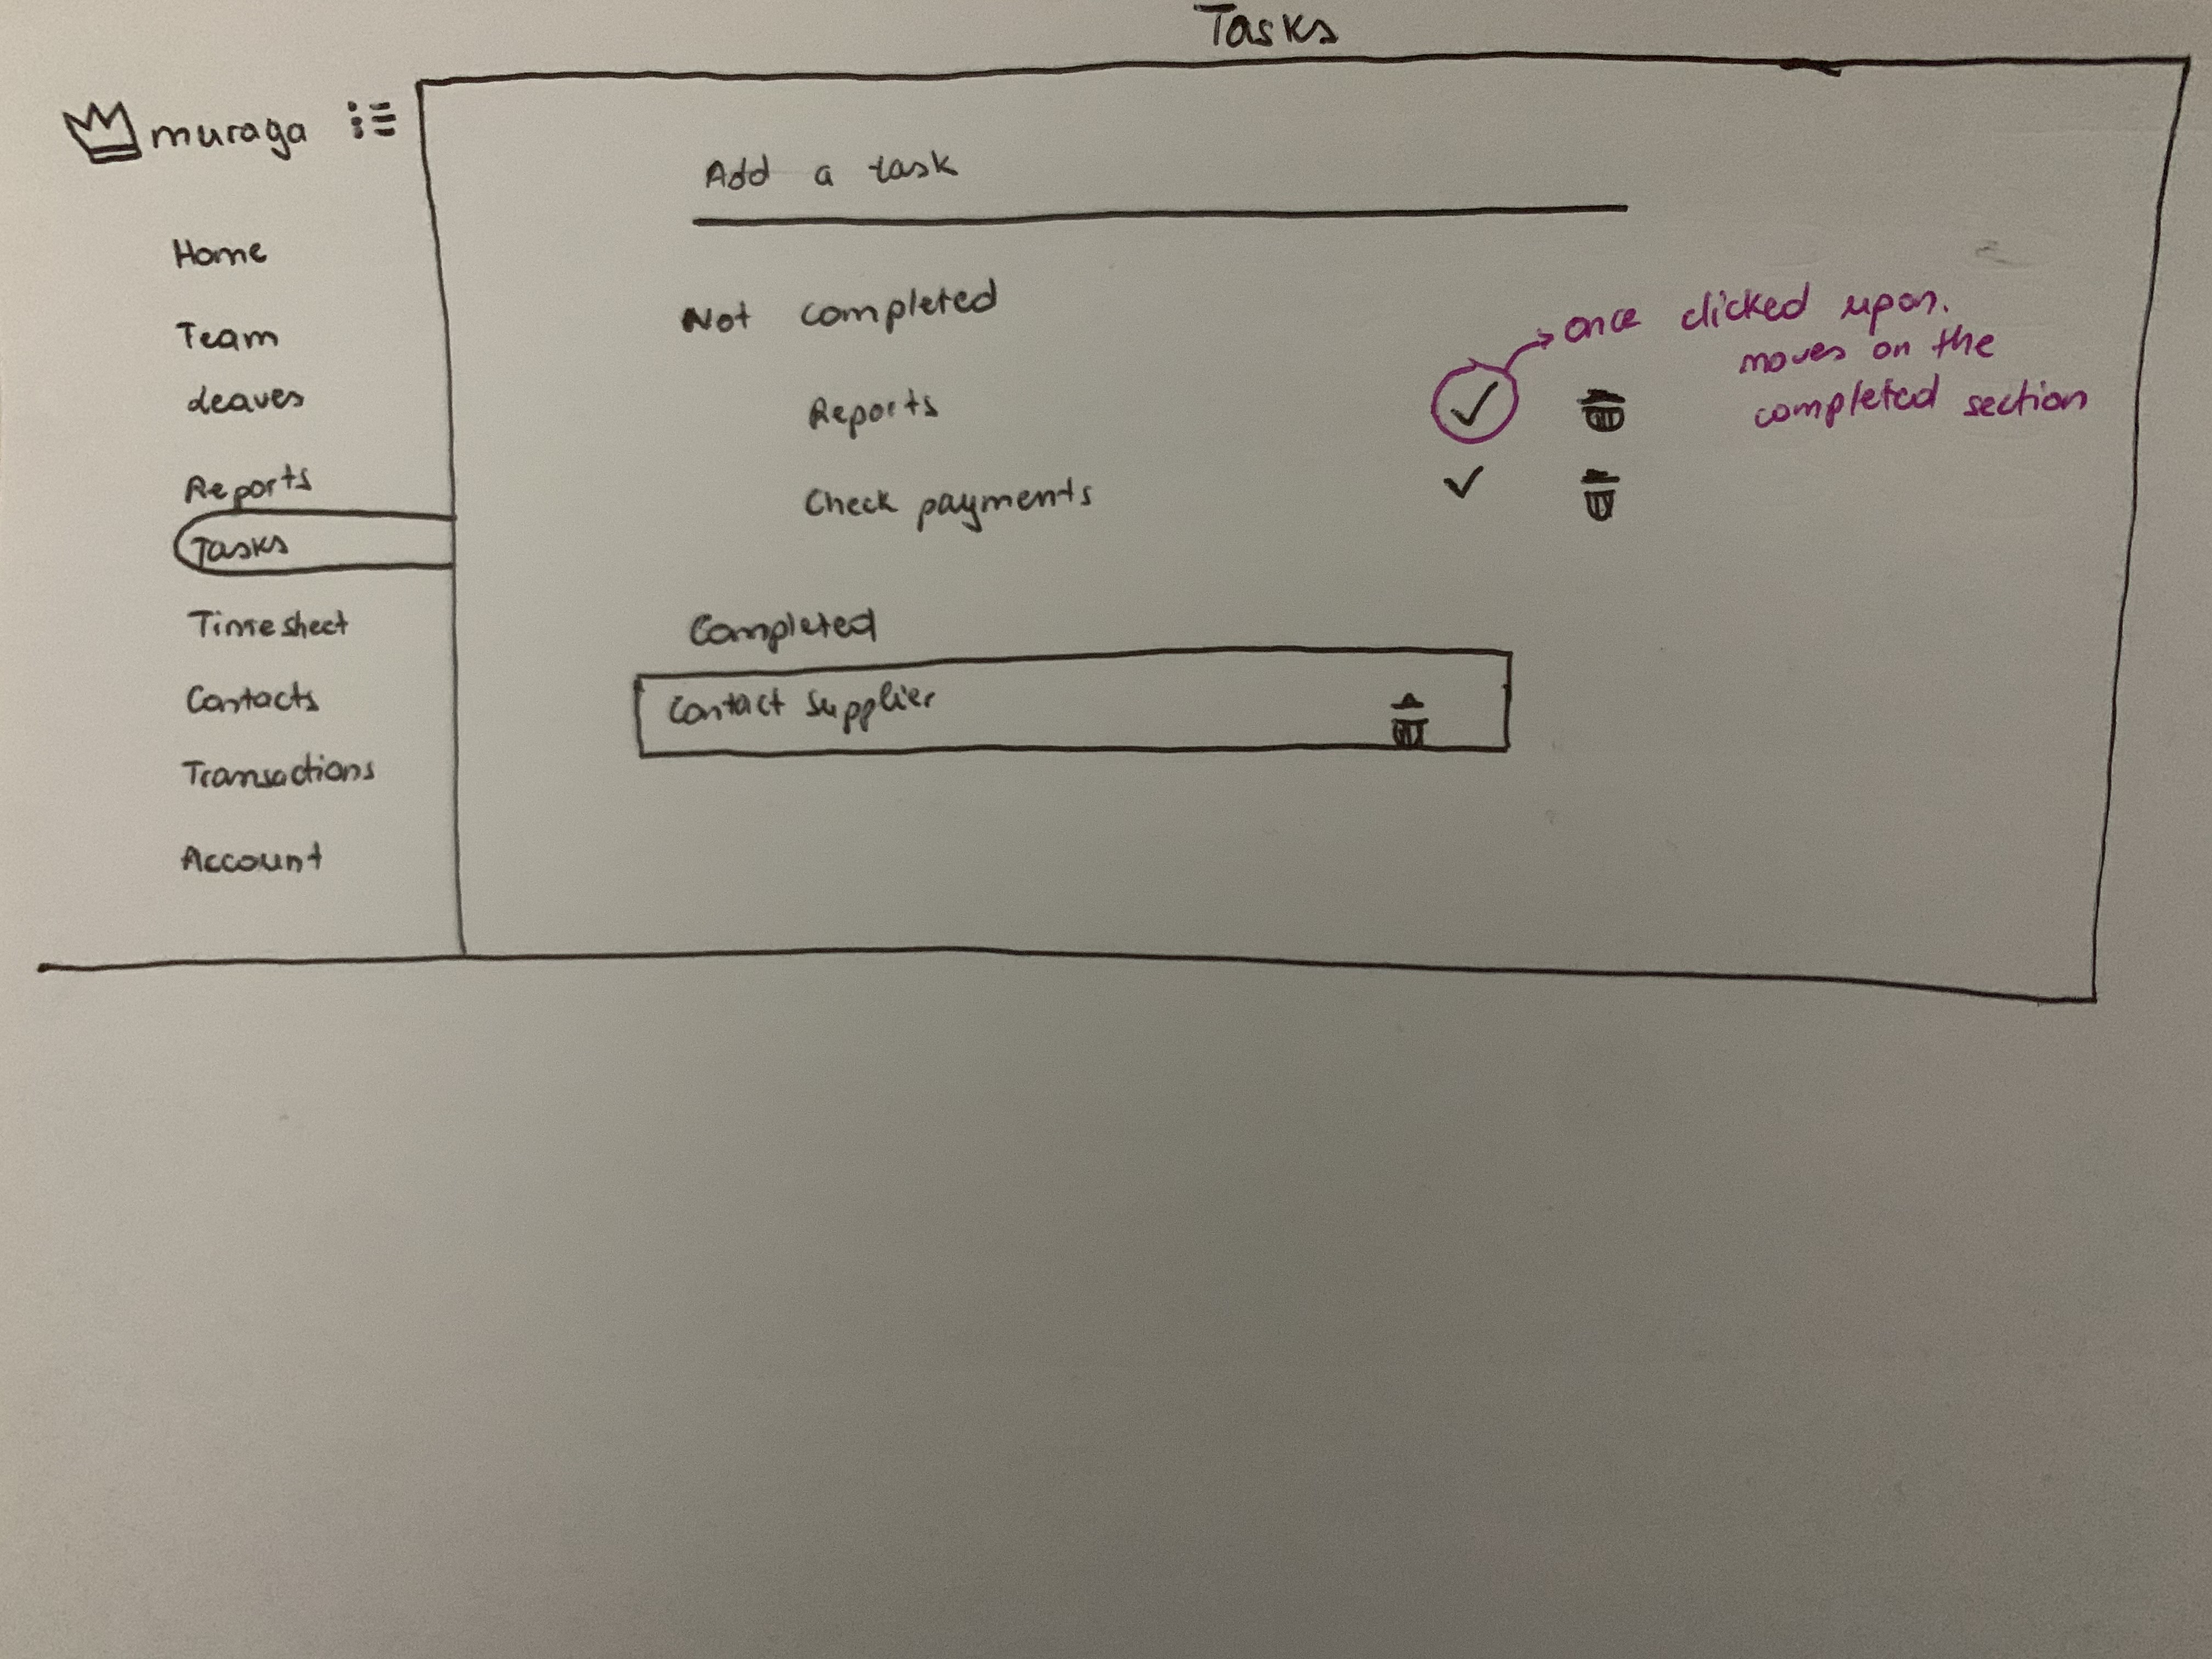 Tasks
muraga
Home
Team
Leaves
Reports
Tasks
Timesheet
Contacts
Transactions
Account
Add a task
Not completed
Reports
Check payments
once clicked upon.
moves on the
completed section
Completed
Contact supplier